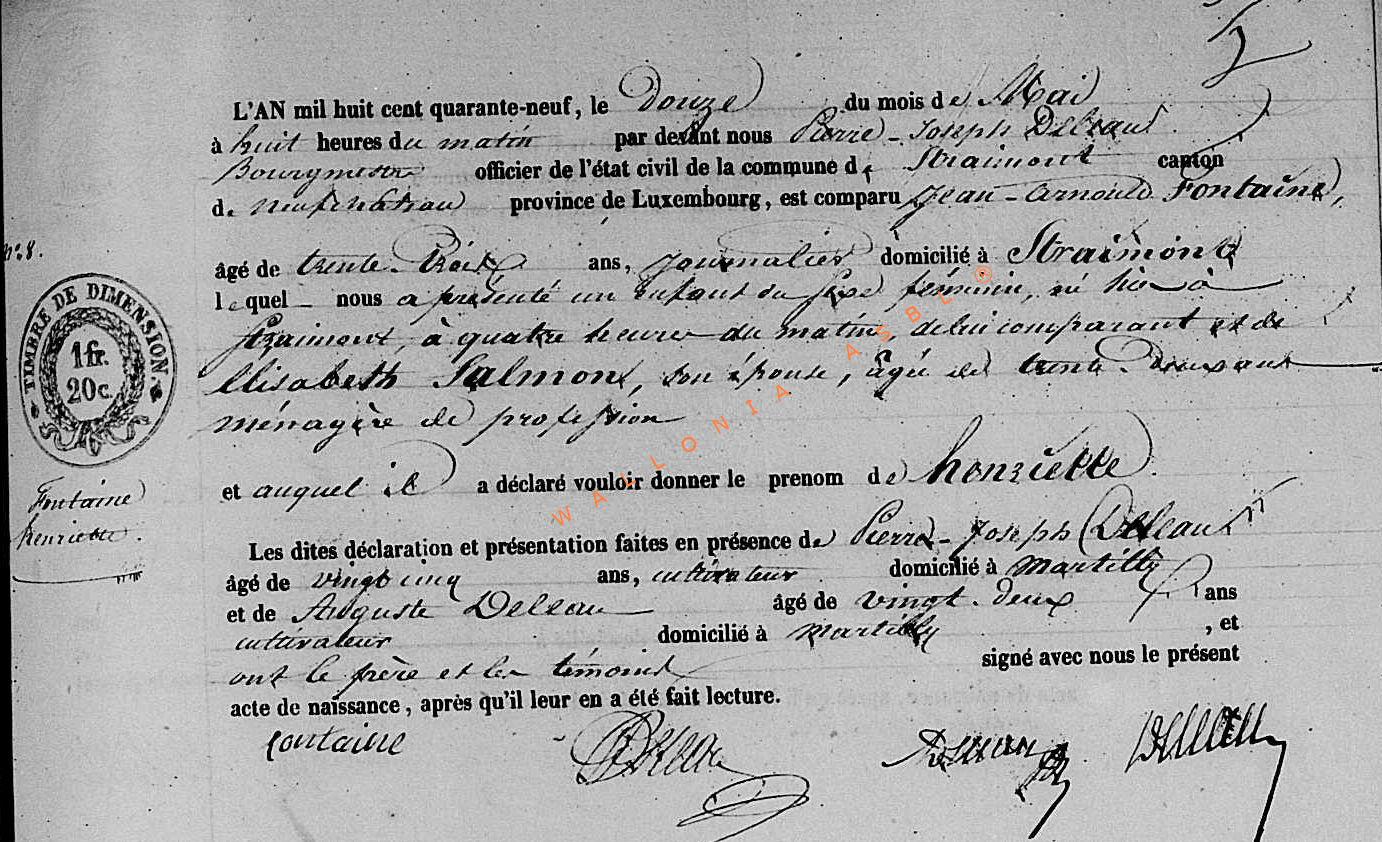 5
L'AN mil huit cent quarante-neuf, le Douze du mois de Mai
à huit heures du matin par devant nous Pierre-Joseph Deleaux
Bourgmestre officier de l'état civil de la commune de Straimont canton
de neufchateau province de Luxembourg, est comparu Jean-Arnould Fontaine,
N°: 8.
âgé de trente-trois ans, journalier domicilié à Straimont
lequel nous a présenté un enfant du sexe féminin, né hier à
Straimont, à quatre heures du matin, de lui comparant et de
Elisabeth Salmon, son épouse, agée de trente-deux ans
ménagère de profession
TIMBRE DE DIMENSION
1 fr.
20 c.
et auquel il a déclaré vouloir donner le prenom de henriette.
Fontaine
henriette.
Les dites déclaration et présentation faites en présence de Pierre-Joseph Deleaux
âgé de vingt cinq ans, cultivateur domicilié à Martilly
et de Auguste Deleau âgé de vingt-deux ans
cultivateur domicilié à Martilly, et
ont le père et les témoins signé avec nous le présent
acte de naissance, après qu'il leur en a été fait lecture.
fontaine
WALLONIA ASBL ®